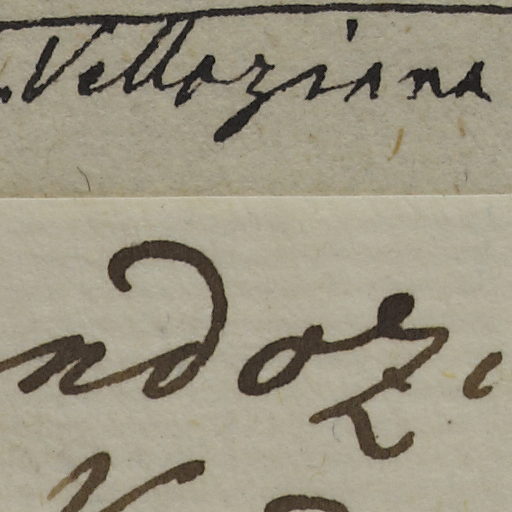 Velloziana
ndozi